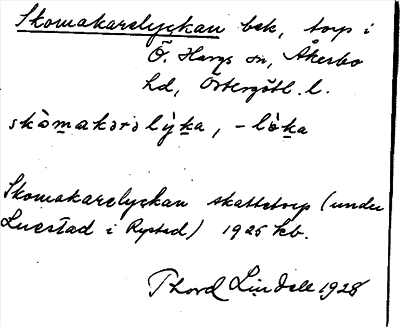 Skomakarelyckan bek, torp i
Ö. Hargs sn, Åkerbo
hd, Östergötl. l.
skòmakərəlỳka, -lòka
Skomakarelyckan skattetorp (under
Lucstad i Rystad) 1925 kb.
Thord Lindell 1928